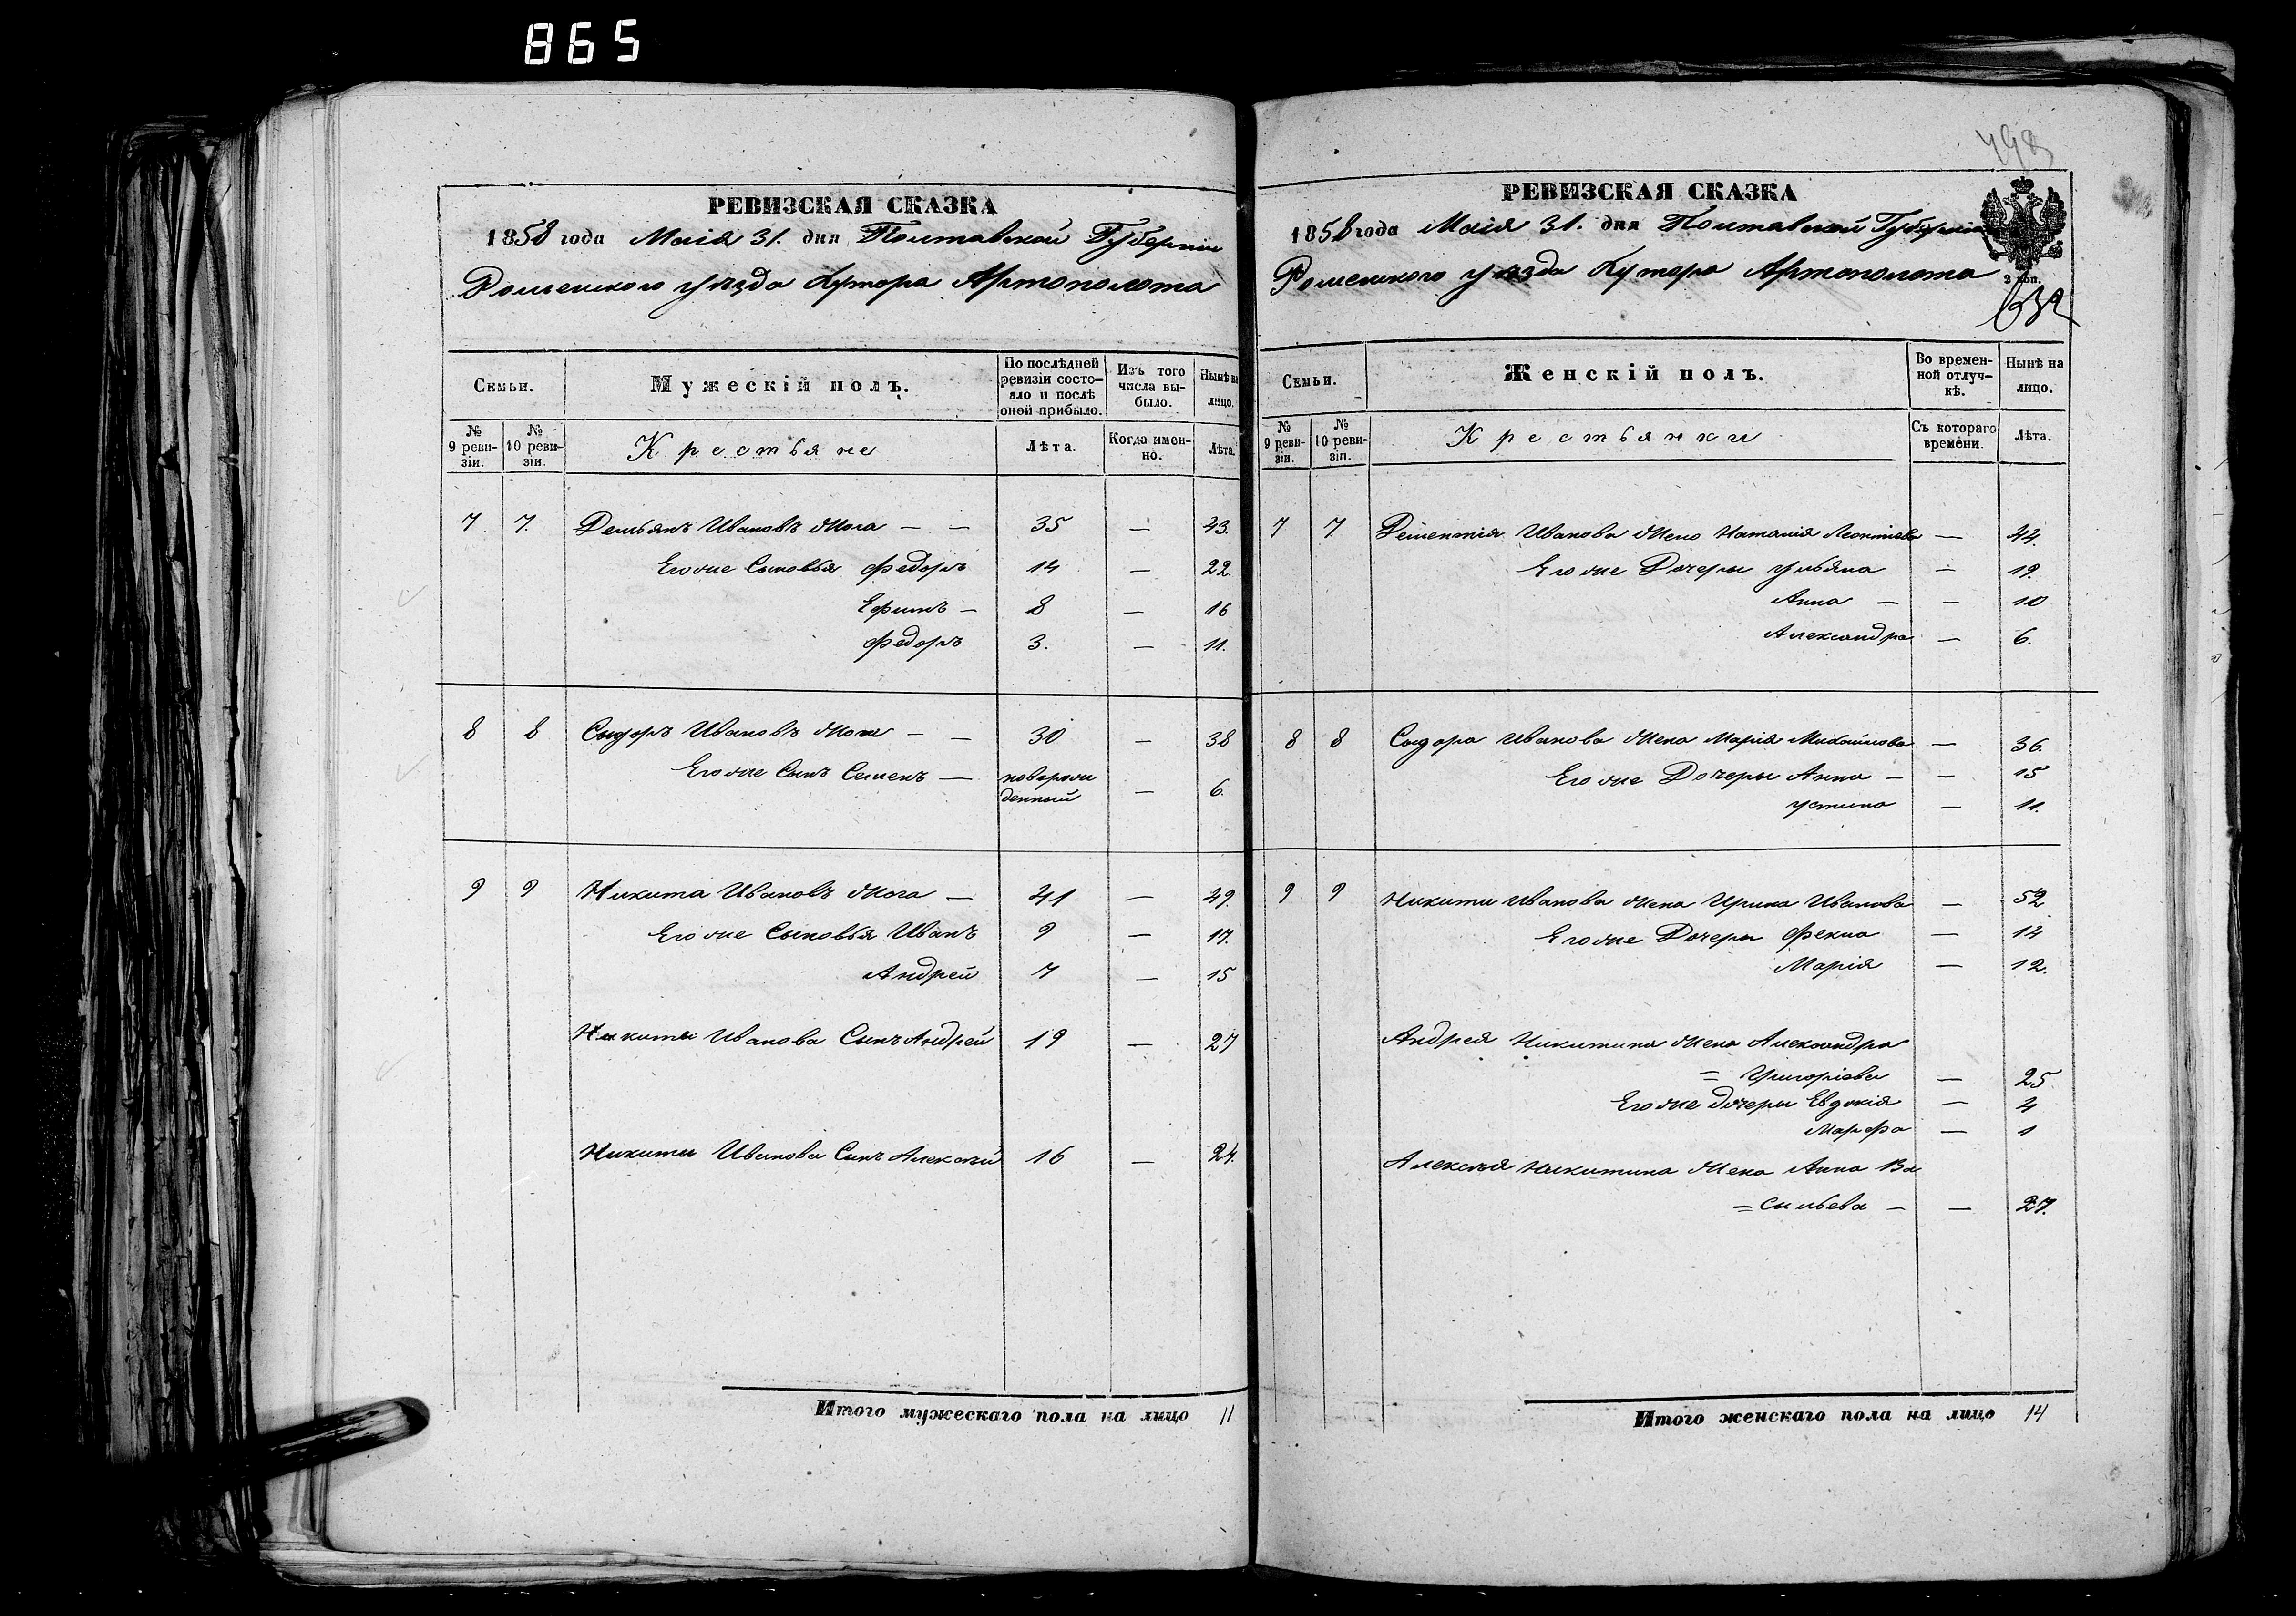 865
РЕВИЗСКАЯ СКАЗКА
1858 года Маія 31. дня Полтавской Губерніи
Роменского уѣзда Хутора Артополота
Семьи.
Мужескій полъ.
По послѣдней ревизіи состояло и послѣ оной прибыло.
Изъ того числа выбыло.
Нынѣ на лицо.
№ 9 ревизіи.
№ 10 ревизіи.
Крестьяне
Лѣта.
Когда именно.
Лѣта.
7 7. Демьянъ Ивановъ Мога — — 35 — 43.
Его же Сыновья Федоръ 14 — 22.
Ефимъ — 8 — 16
Федоръ 3. — 11.
8 8 Сыдоръ Ивановъ Мога — — 30 — 38
Его же Сынъ Семенъ — новорожденный — 6.
9 9 Никита Ивановъ Мога — 41 — 49.
Его же Сыновья Иванъ 9 — 17.
Андрей 7 — 15
Никиты Иванова Сынъ Андрей 19 — 27
Никиты Иванова Сынъ Алексѣй 16 — 24.
Итого мужескаго пола на лицо 11
498
РЕВИЗСКАЯ СКАЗКА
1858 года Маія 31. дня Полтавской Губерніи
Роменского уѣзда Хутора Артополота
2 коп.
Семьи.
Женскій полъ.
Во временной отлучкѣ.
Нынѣ на лицо.
№ 9 ревизіи.
№ 10 ревизіи.
Крестьянки
Съ котораго времени.
Лѣта.
7 7. Иванова Жена Наталія Леонтіева — 44.
Его же Дочеры Ульяна — 19.
Анна — — 10
Александра — 6.
8 8 Сыдора Иванова Жена Марія Михайлова — 36.
Его же Дочеры Анна — — 15
Устина — 11.
9 9 Никиты Иванова Жена Ирина Иванова — 52
Его же Дочеры Фекла — 14
Марія — 12.
Андрея Никитина Жена Александра
= Григоріева — 25.
Его же дочеры Евдокія — 4
Марфа — 1
Алексѣя Никитина Жена Анна Ва
= сильева — — 27.
Итого женскаго пола на лицо 14